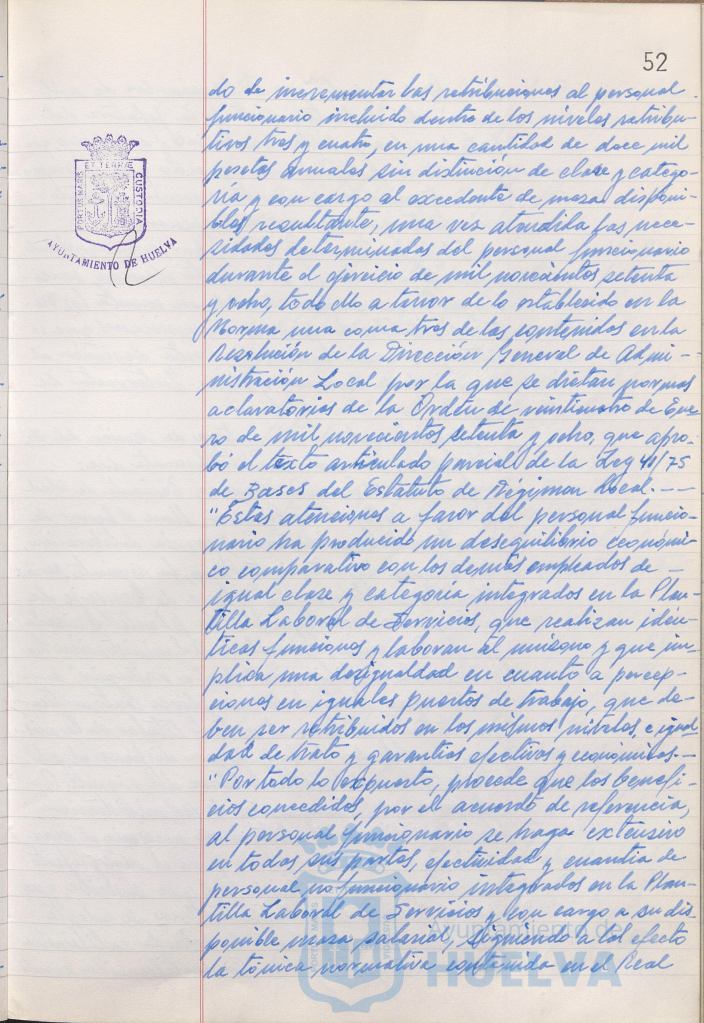 52
do de incrementar las retribuciones al personal
funcionario incluido dentro de los niveles retribu-
tivos tres y cuatro, en una cantidad de doce mil
pesetas anuales sin distinción de clase y catego-
ría y con cargo al excedente de masa disponi-
bles resultante, una vez atendida las nece-
sidades determinadas del personal funcionario
durante el ejercicio de mil novecientos setenta
y ocho, todo ello a tenor de lo establecido en la
Norma una coma tres de las contenidas en la
Resolución de la Dirección General de Admi-
nistración Local por la que se dictan normas
aclaratorias de la Orden de veinticuatro de Ene-
ro de mil novecientos setenta y ocho, que apro-
bó el texto articulado parcial de la Ley 41/75
de Bases del Estatuto de Régimen Local.- --
"Estas atenciones a favor del personal funcio-
nario ha producido un desequilibrio económi-
co comparativo con los demás empleados de -
igual clase y categoría integrados en la Plan-
tilla Laboral de Servicios, que realizan idén-
ticas funciones y laboran al unísono y que im-
plica una desigualdad en cuanto a percep-
ciones en iguales puestos de trabajo, que de-
ben ser retribuidos en los mismos niveles, e igual
dad de trato y garantías efectivas y económicas.-
"Por todo lo expuesto, procede que los benefi-
cios concedidos, por el acuerdo de referencia,
al personal funcionario se haga extensivo
en todas sus partes, efectividad y cuantía de
personal no funcionario integrados en la Plan-
tilla Laboral de Servicios y con cargo a su dis-
ponible masa salarial, siguiendo a tal efecto
la tónica normativa contenida en el Real
PORTUS MARIS ET TERRAE CUSTODIA
AYUNTAMIENTO DE HUELVA
Ayuntamiento de
HUELVA